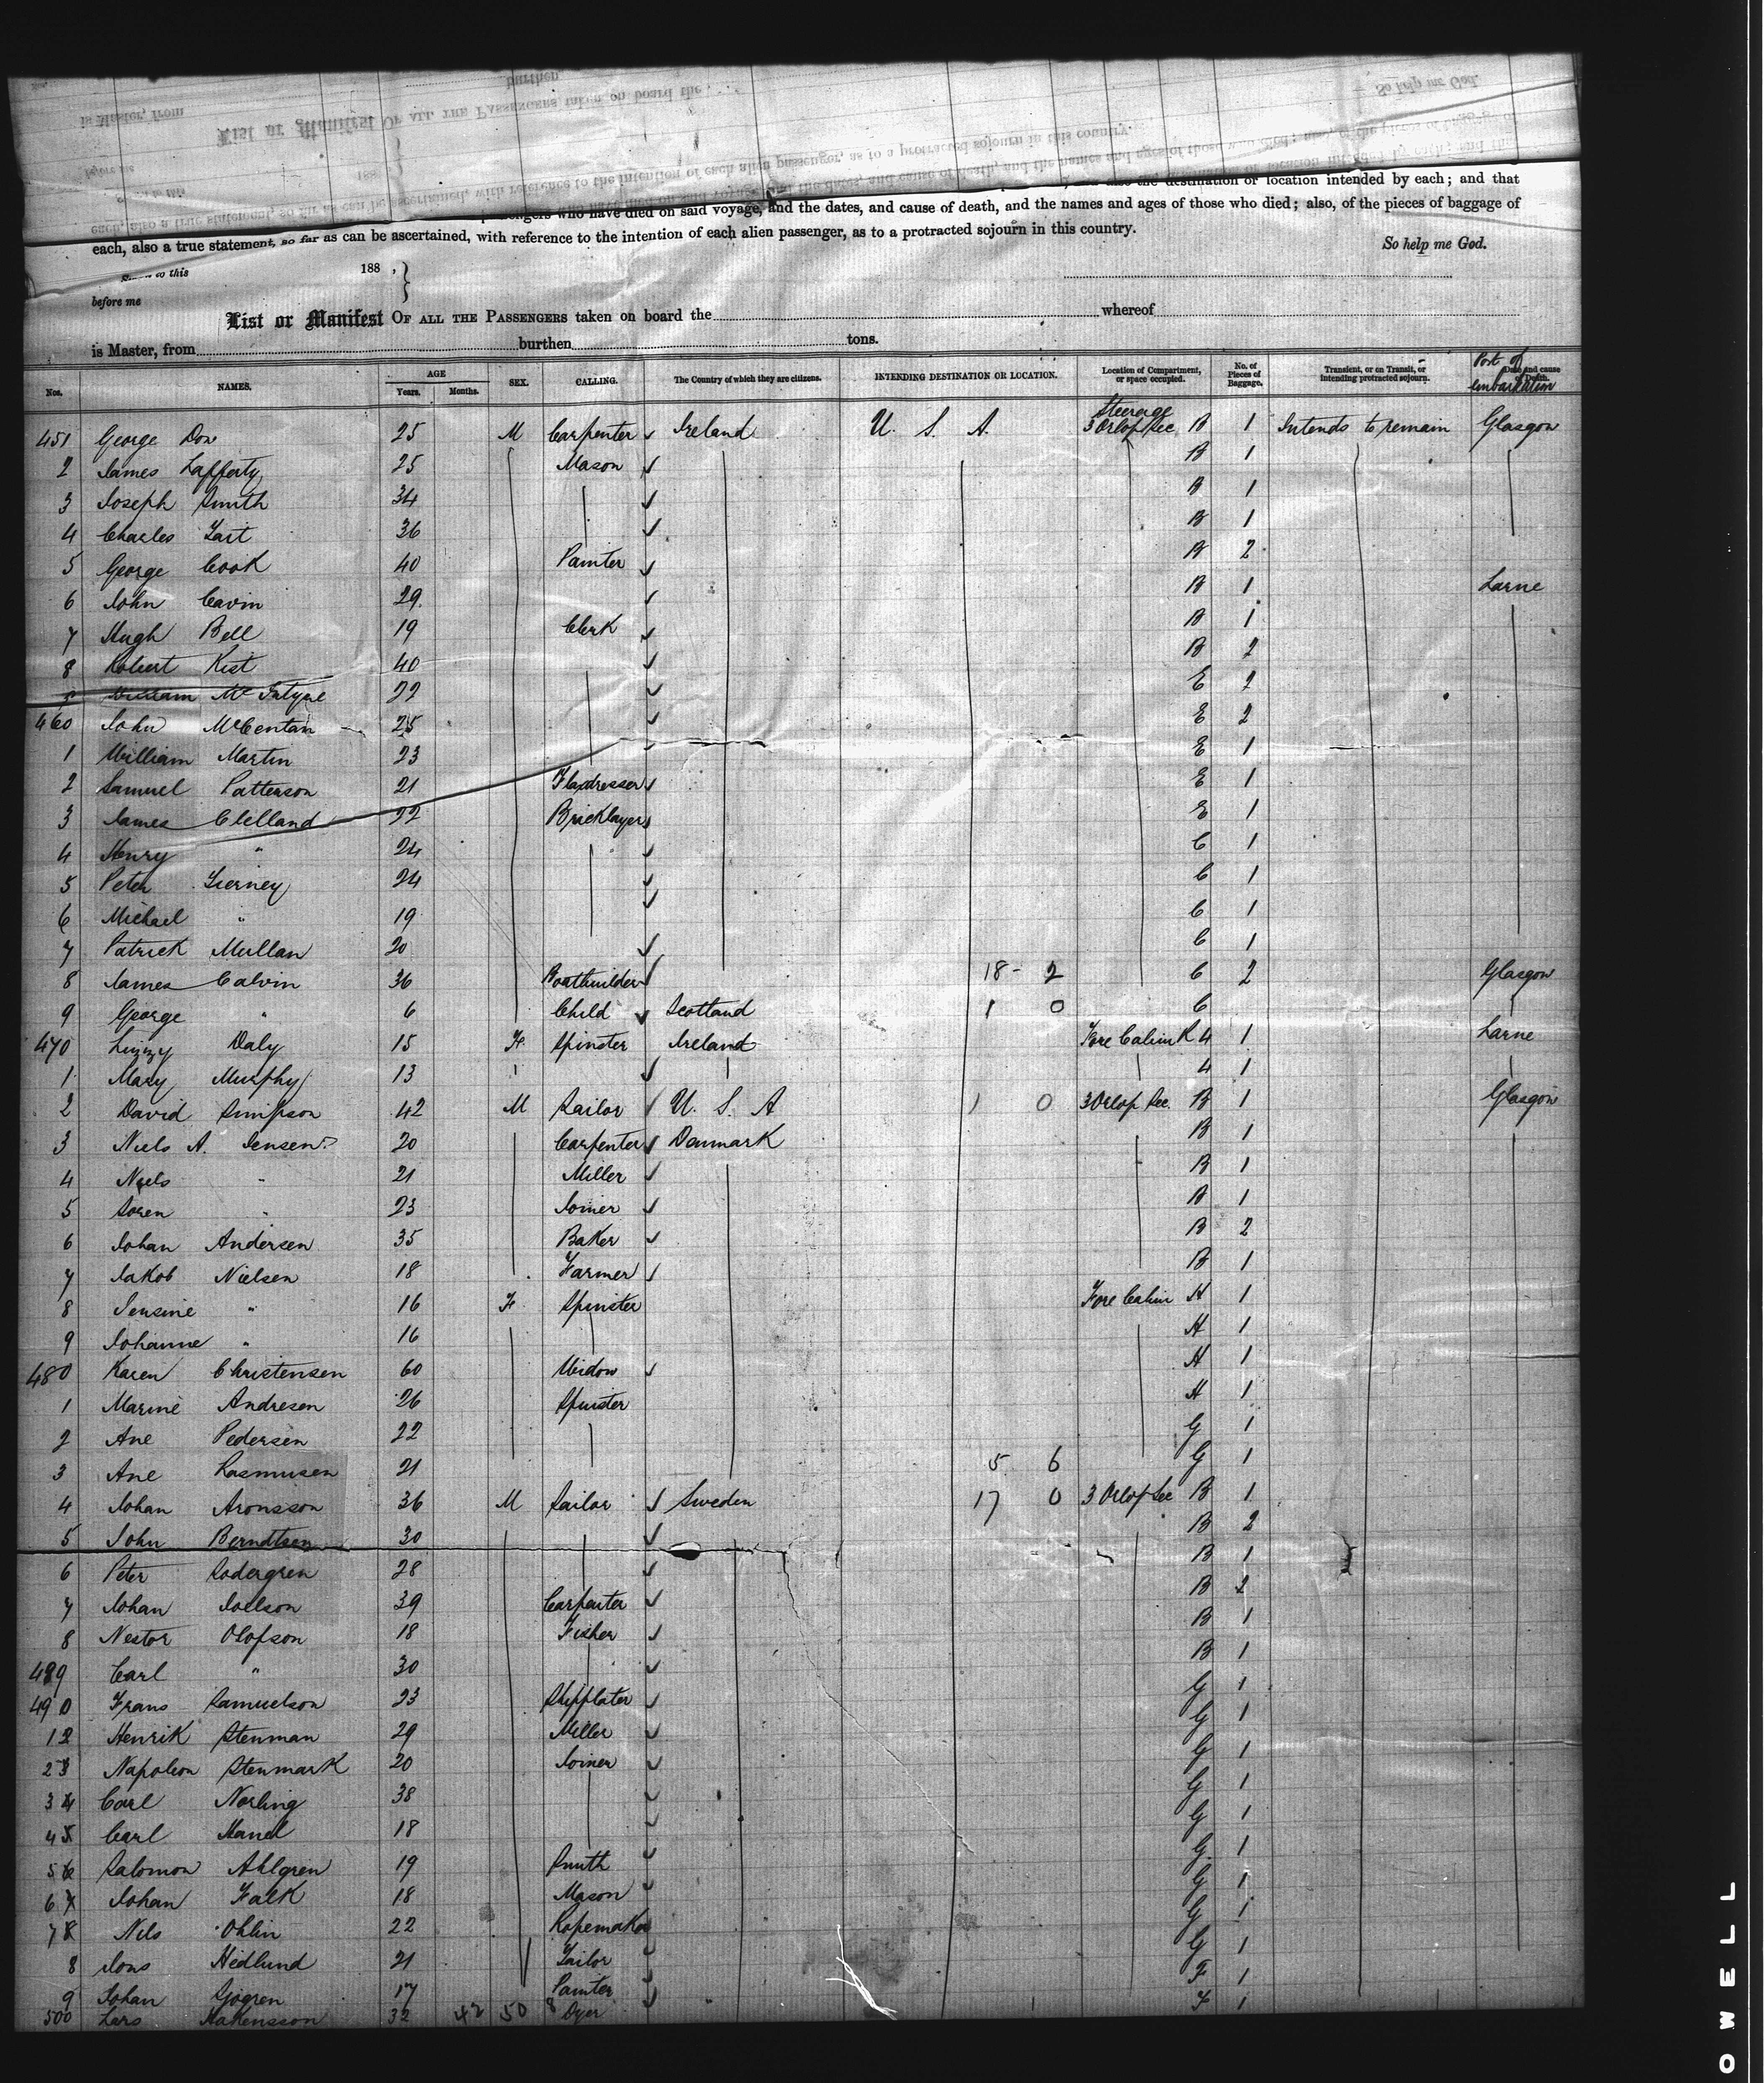 the destination or location intended by each; and that
passengers who have died on said voyage, and the dates, and cause of death, and the names and ages of those who died; also, of the pieces of baggage of
each, also a true statement, so far as can be ascertained, with reference to the intention of each alien passenger, as to a protracted sojourn in this country.
So help me God.
to this 188 , }
before me
List or Manifest OF ALL THE PASSENGERS taken on board the whereof
is Master, from burthen tons.
Nos. NAMES. AGE Years. Months. SEX. CALLING. The Country of which they are citizens. INTENDING DESTINATION OR LOCATION. Location of Compartment, or space occupied. No. of Pieces of Baggage. Transient, or on Transit, or intending protracted sojourn. Date and cause of Death. Port of Embarkation
451 George Dow 25 M Carpenter Ireland U. S. A. Steerage 3 Orlop Sec B 1 Intends to remain Glasgow
2 James Lafferty 25 Mason B 1
3 Joseph Smith 34 B 1
4 Charles Tait 36 B 1
5 George Cook 40 Painter B 2
6 John Cavin 29 B 1 Larne
7 Hugh Bell 19 Clerk B 1
8 Robert Kist 40 B 2
William McIntyre 22 E 2
460 John McCentan 25 E 2
1 William Martin 23 E 1
2 Samuel Patterson 21 Flaxdresser E 1
3 James Clelland 22 Bricklayer E 1
4 Henry " 24 C 1
5 Peter Tierney 24 C 1
6 Michael " 19 C 1
7 Patrick Mullan 20 C 1
8 James Calvin 36 Boatbuilder 18 - 2 C 2 Glasgow
9 George " 6 Child Scotland 1 0 C
470 Lizzy Daly 15 F Spinster Ireland Fore Cabin K 4 1 Larne
1 Mary Murphy 13 4 1
2 David Simpson 42 M Sailor U. S. A 1 0 3 Orlop Sec. B 1 Glasgow
3 Niels A. Jensen 20 Carpenter Denmark B 1
4 Niels " 21 Miller B 1
5 Soren " 23 Joiner B 1
6 Johan Andersen 35 Baker B 2
7 Jakob Nielsen 18 Farmer B 1
8 Jensine " 16 F Spinster Fore Cabin H 1
9 Johanne " 16 H 1
480 Karen Christensen 60 Widow H 1
1 Marine Andresen 26 Spinster H 1
2 Ane Pedersen 22 G 1
3 Ane Rasmusen 21 5 6 G 1
4 Johan Aronsson 36 M Sailor Sweden 17 0 3 Orlop Sec B 1
5 John Berndtsen 30 B 2
6 Peter Sodergren 28 B 1
7 Johan Joelson 39 Carpenter B 2
8 Nestor Olofson 18 Fisher B 1
489 Carl " 30 B 1
490 Frans Samuelson 23 Shipplater G 1
1 Henrik Stenman 29 Miller G 1
2 Napoleon Stenmark 20 Joiner G 1
3 Carl Norling 38 G 1
4 Carl Hanel 18 G 1
5 Salomon Ahlgren 19 Smith G 1
6 Johan Falk 18 Mason G 1
7 Nils Ohlin 22 Ropemaker G 1
8 Jons Hedlund 21 Tailor G 1
9 Johan Sjogren 17 Painter F 1
500 Lars Hakensson 32 42 50 8 Dyer F 1
OWELL